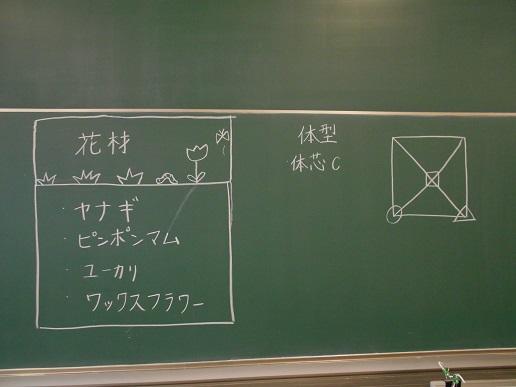 花材
・ヤナギ
・ピンポンマム
・ユーカリ
・ワックスフラワー
体型
・体芯C